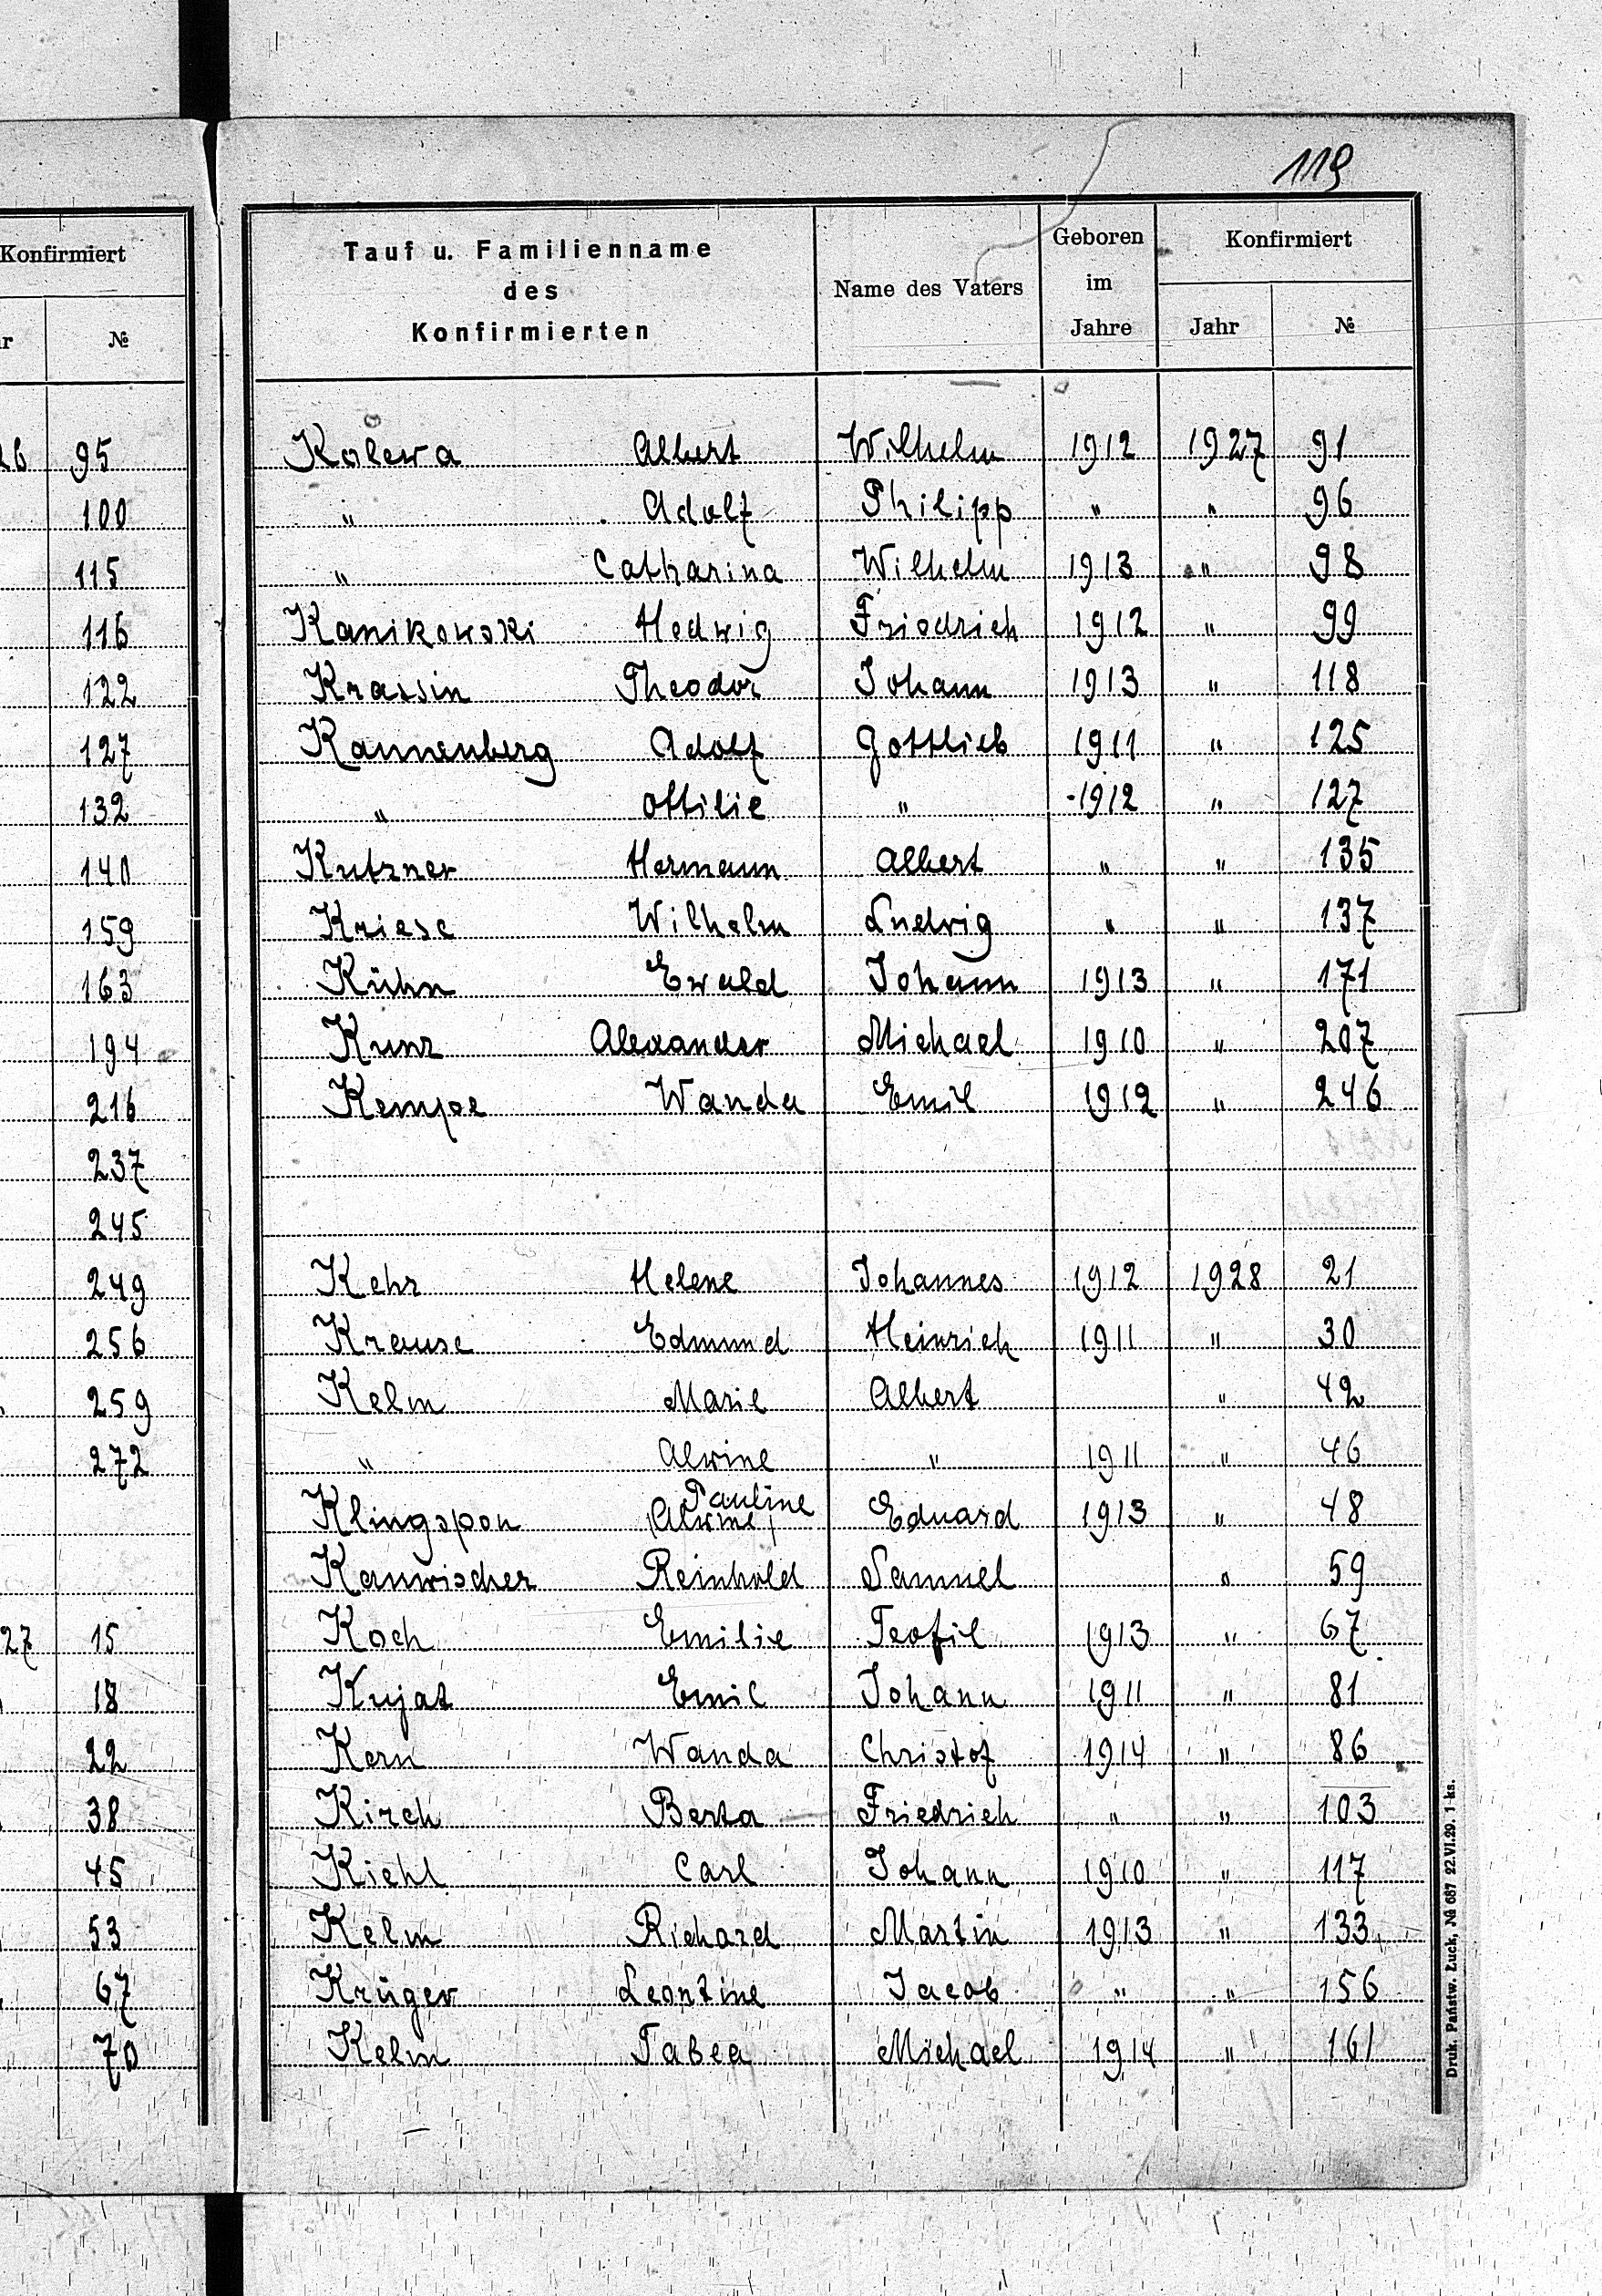 119
Konfirmiert
№
26 95
100
115
116
122
127
132
140
159
163
194
216
237
245
249
256
259
272
27 15
18
22
38
45
53
67
70
Tauf u. Familienname des Konfirmierten | Name des Vaters | Geboren im Jahre | Konfirmiert
Jahr | №
Kolewa Albert Wilhelm 1912 1927 91
" Adolf Philipp " " 96
" Catharina Wilhelm 1913 " 98
Kanikowski Hedwig Friedrich 1912 " 99
Krassin Theodor Johann 1913 " 118
Kannenberg Adolf Gottlieb 1911 " 125
" Ottilie " 1912 " 127
Kutzner Hermann Albert " " 135
Kriese Wilhelm Ludwig " " 137
Kühn Ewald Johann 1913 " 171
Kunz Alexander Michael 1910 " 207
Kempe Wanda Emil 1912 " 246
Kehr Helene Johannes 1912 1928 21
Krause Edmund Heinrich 1911 " 30
Kelm Marie Albert " 42
" Alwine " 1911 " 46
Pauline
Klingspon (Alwine) Eduard 1913 " 48
Kanwischer Reinhold Samuel " 59
Koch Emilie Teofil 1913 " 67
Kujat Emil Johann 1911 " 81
Kern Wanda Christof 1914 " 86
Kirch Berta Friedrich " " 103
Kiehl Carl Johann 1910 " 117
Kelm Richard Martin 1913 " 133
Krüger Leontine Jacob " " 156
Kelm Tabea Michael 1914 " 161
Druk. Państw. Łuck, № 687 22.VI.29. 1 ks.